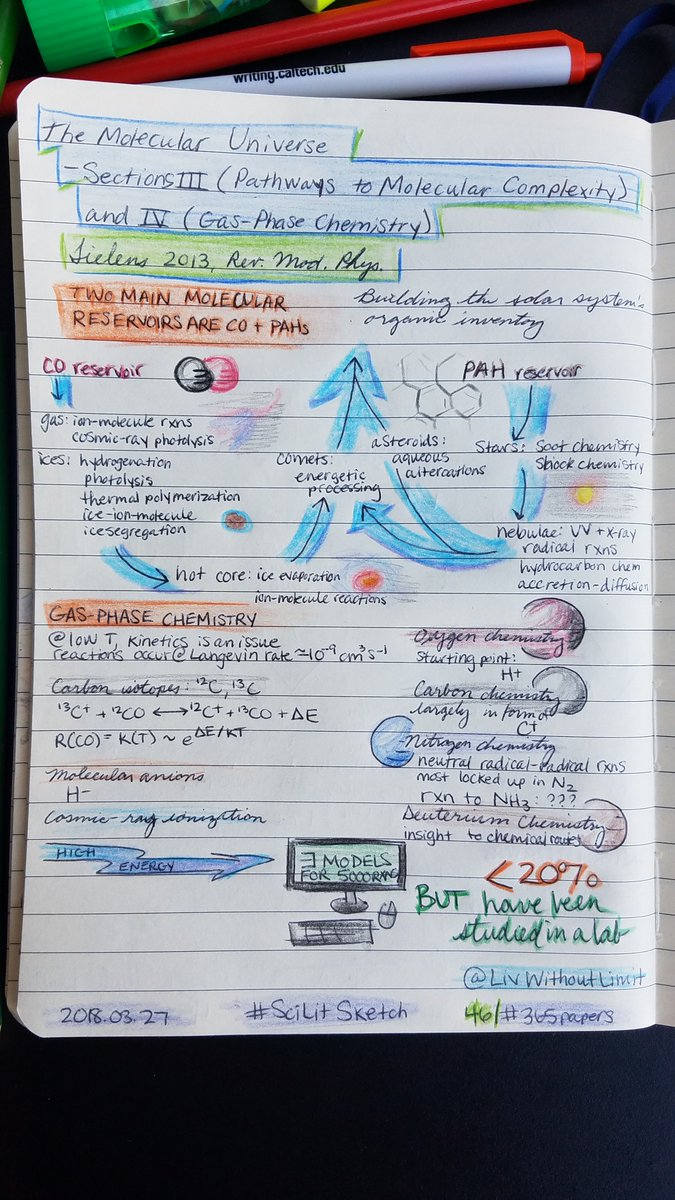 writing.caltech.edu
The Molecular Universe
- Sections III (Pathways to Molecular Complexity)
and IV (Gas-Phase Chemistry)
Tielens 2013, Rev. Mod. Phys.
TWO MAIN MOLECULAR
RESERVOIRS ARE CO + PAHs
Building the solar system's
organic inventory
CO reservoir
gas: ion-molecule rxns
cosmic-ray photolysis
ices: hydrogenation
photolysis
thermal polymerization
ice-ion-molecule
ice segregation
hot core: ice evaporation
ion-molecule reactions
comets:
energetic
processing
asteroids:
aqueous
altercations
PAH reservoir
Stars: Soot chemistry
Shock chemistry
nebulae: UV + x-ray
radical rxns
hydrocarbon chem
accretion-diffusion
GAS-PHASE CHEMISTRY
@ low T, kinetics is an issue
reactions occur @ Langevin rate ≈ 10⁻⁹ cm³ s⁻¹
Carbon isotopes: ¹²C, ¹³C
¹³C⁺ + ¹²CO ⟷ ¹²C⁺ + ¹³CO + ΔE
R(CO) = K(T) ~ e^ΔE/KT
Molecular anions
H⁻
Cosmic-ray ionization
HIGH
ENERGY
Oxygen chemistry
Starting point:
H⁺
Carbon chemistry
largely in form of
C⁺
Nitrogen chemistry
neutral radical-radical rxns
most locked up in N₂
rxn to NH₃: ???
Deuterium Chemistry
insight to chemical routes
∃ MODELS
FOR 5000 RXNS
<20%
BUT have been
studied in a lab
@LivWithoutLimit
2018.03.27 #SciLitSketch 46/#365papers